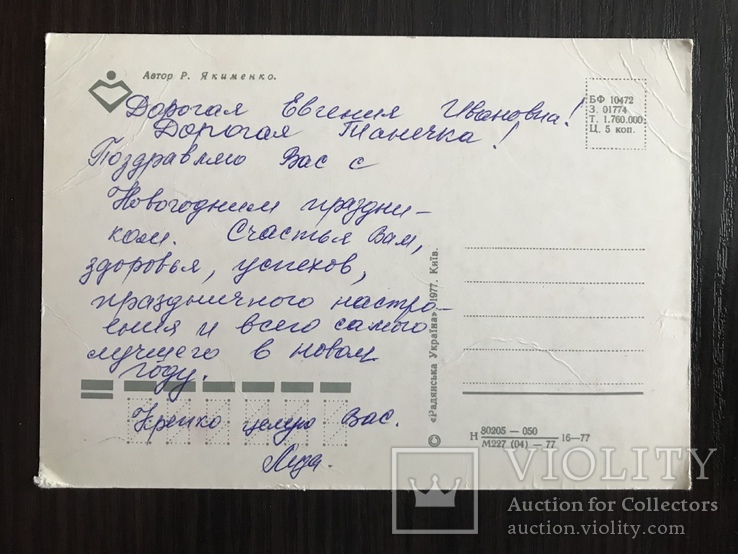 Автор Р. Якименко.
Дорогая Евгения Ивановна!
Дорогая Танечка!
Поздравляю Вас с
Новогодним праздни-
ком. Счастья Вам,
здоровья, успехов,
праздничного настро-
ения и всего самого
лучшего в новом
году.
Крепко целую Вас.
Лида.
БФ 10472
З. 01774
Т. 1.760.000
Ц. 5 коп.
© «Радянська Україна», 1977. Київ.
Н 80205 — 050
М227 (04) — 77 16—77
VIOLITY
Auction for Collectors
auction.violity.com